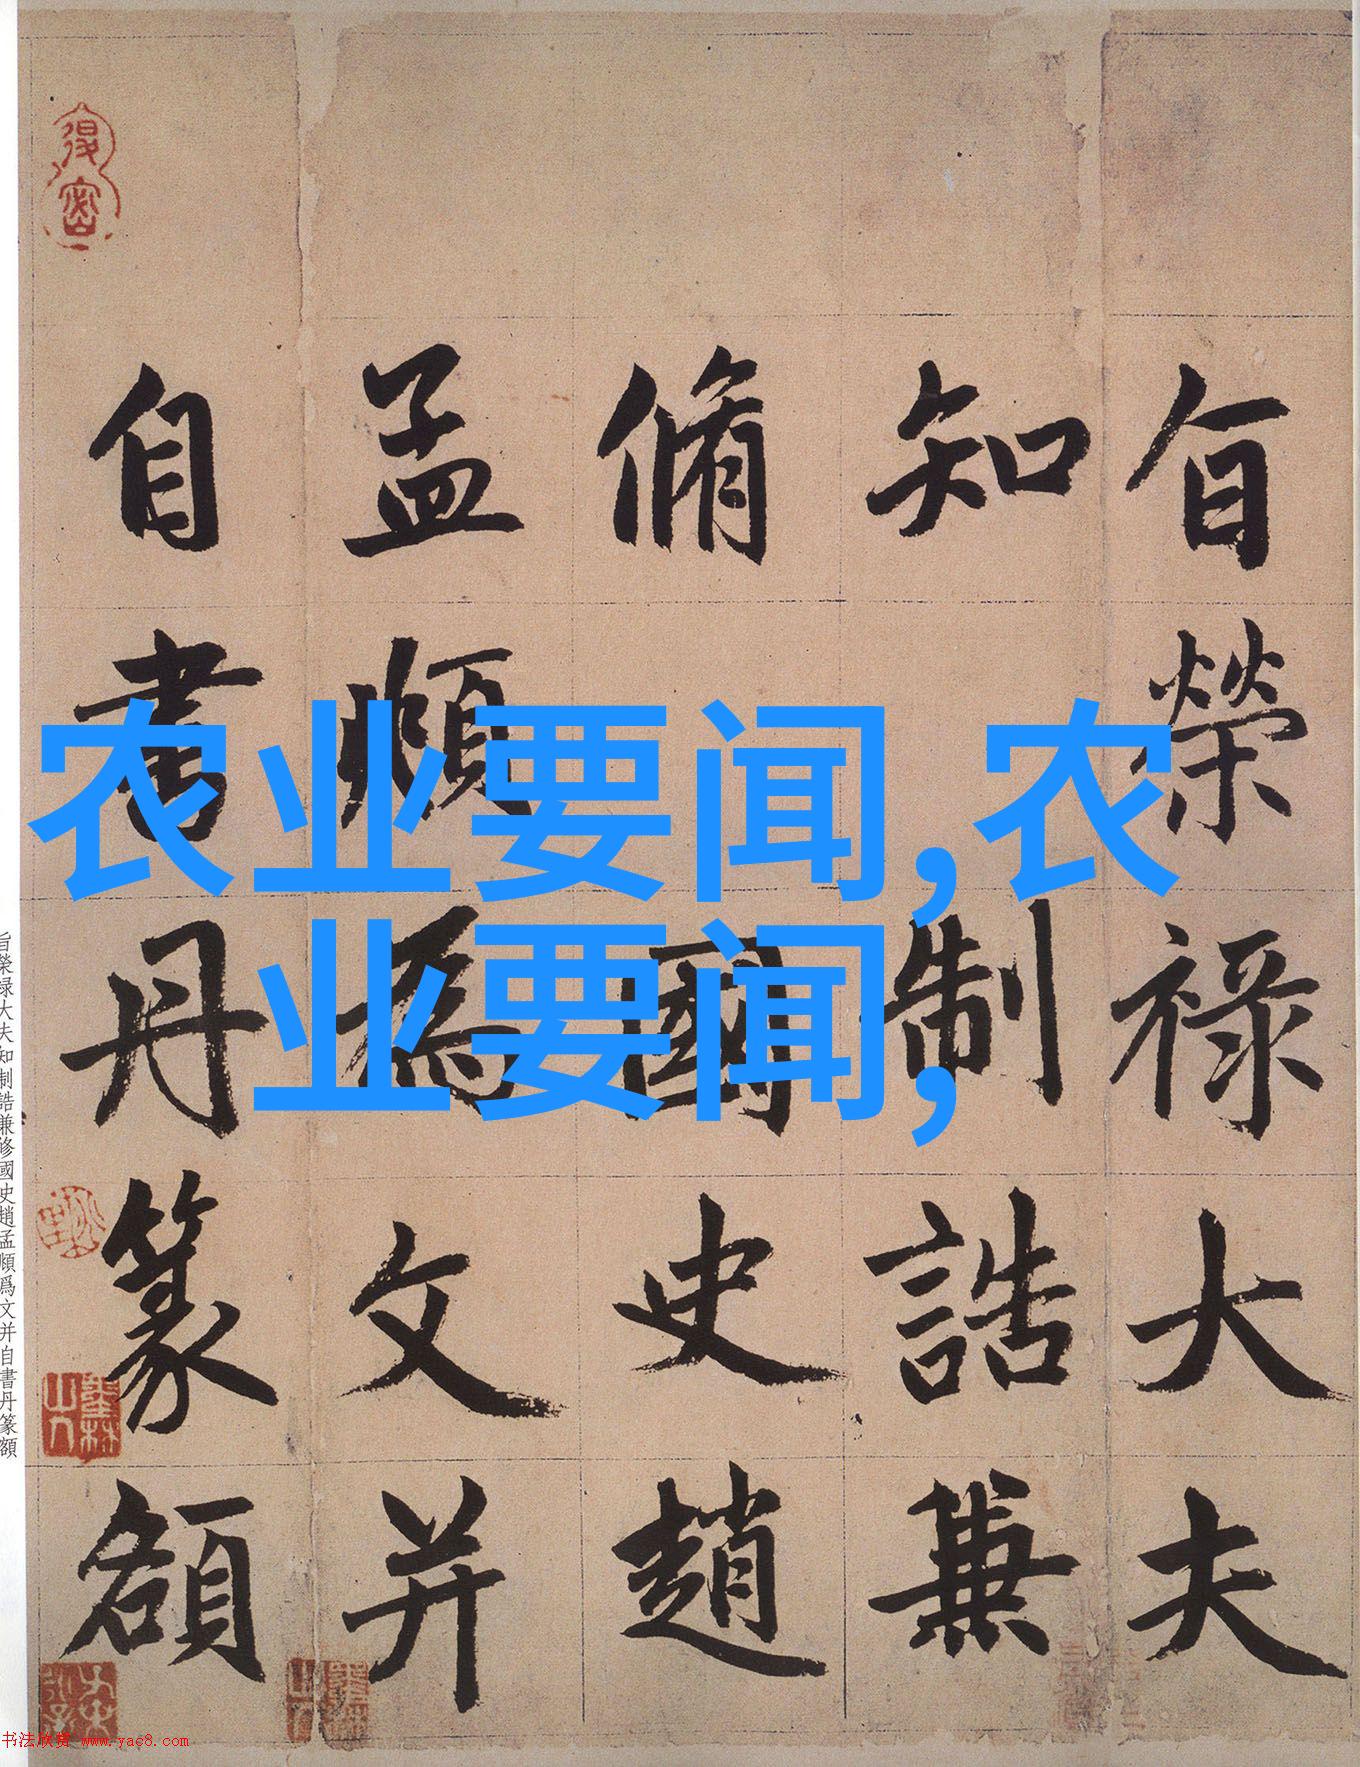 旨榮祿大夫
知制誥兼
脩國史趙
孟頫為文并
自書丹篆額
农业要闻,农
业要闻,
旨榮禄大夫知制誥兼修國史趙孟頫爲文并自書丹篆額
书法欣赏 www.yac8.com